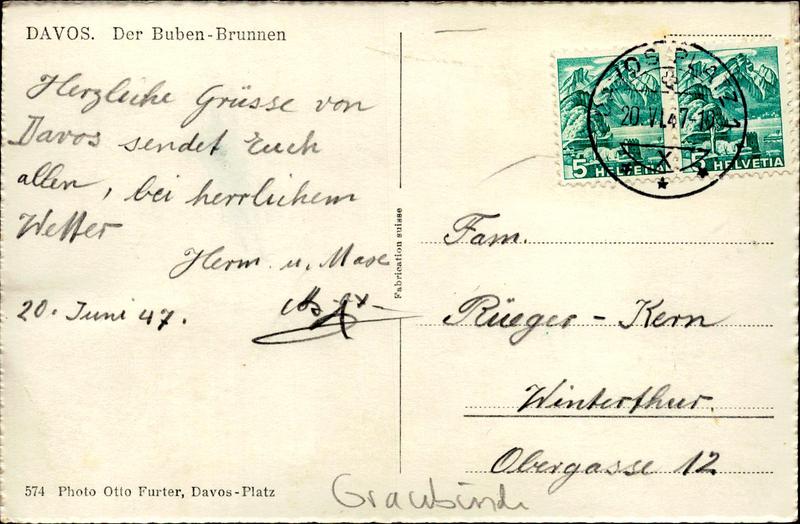 DAVOS. Der Buben-Brunnen
Herzliche Grüsse von
Davos sendet Euch
allen, bei herrlichem
Wetter
Herm. u. Max
20. Juni 47.
Fabrication suisse
DAVOS PLATZ 1
20.VI.47-18
X
5 HELVETIA
5 HELVETIA
Fam.
Rüeger-Kern
Winterthur.
Obergasse 12
574 Photo Otto Furter, Davos-Platz
Graubünde